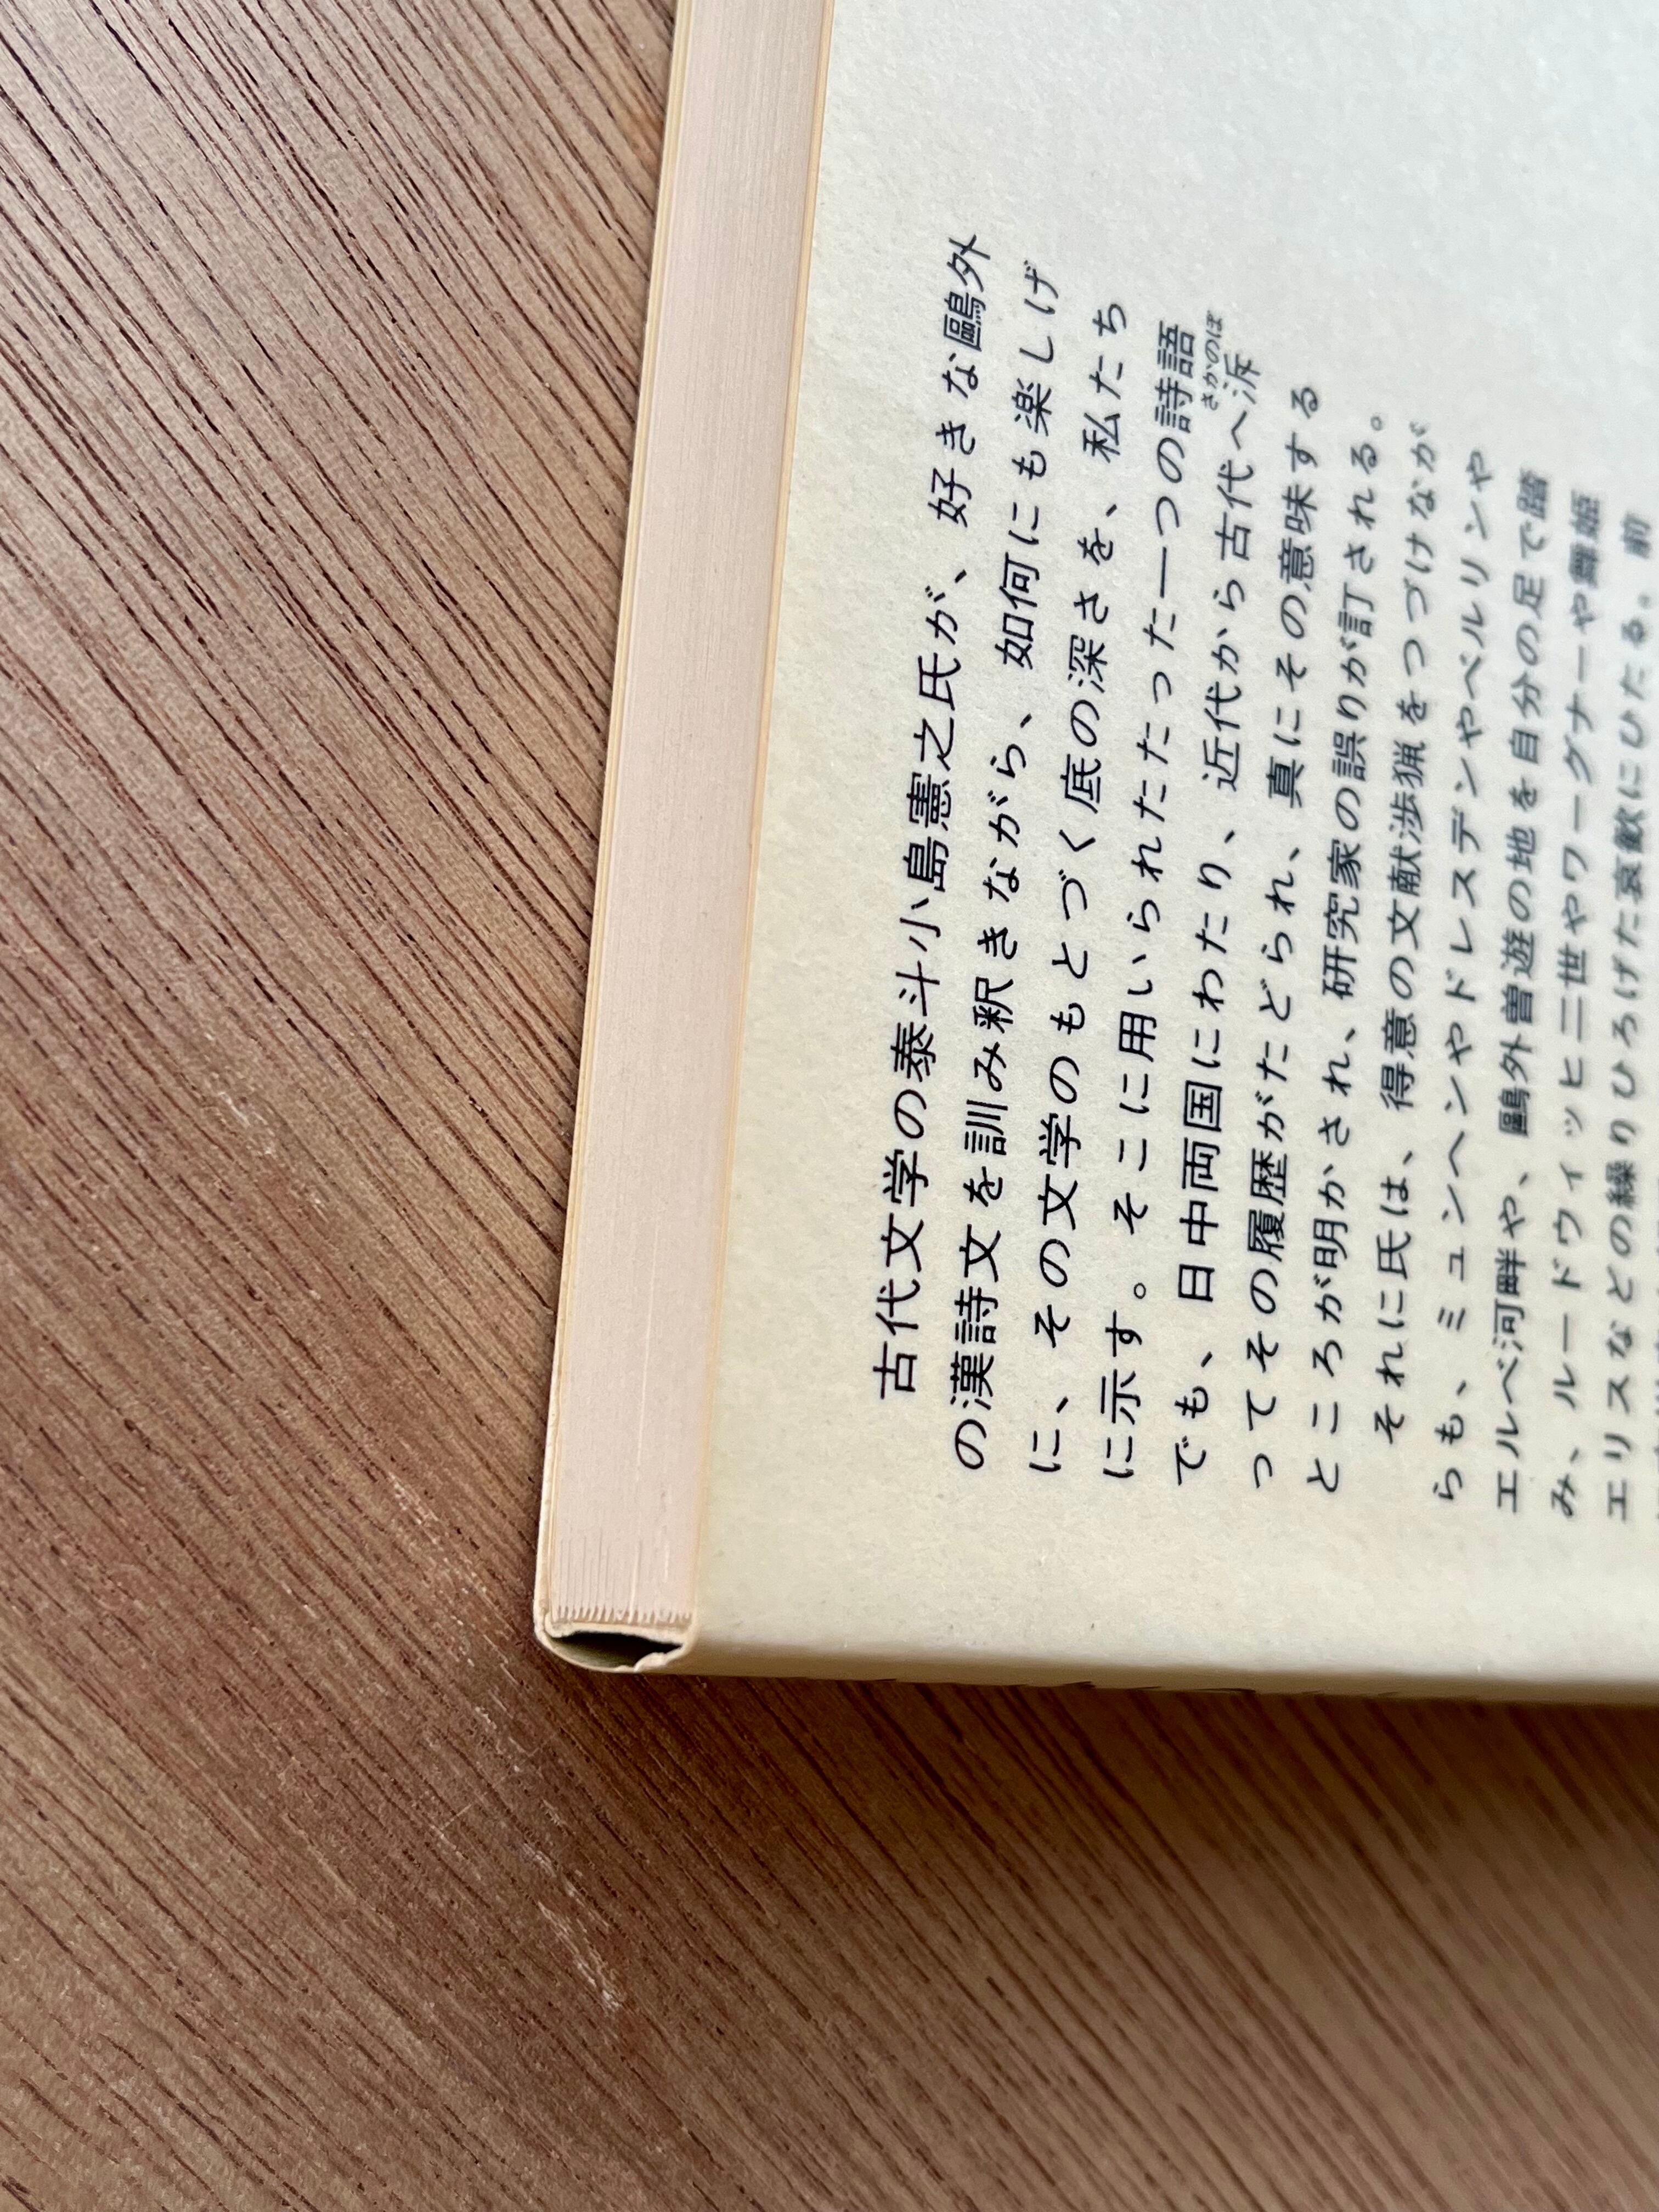 古代文学の泰斗小島憲之氏が、好きな鷗外
の漢詩文を訓み釈きながら、如何にも楽しげ
に、その文学のもとづく底の深さを、私たち
に示す。そこに用いられたたった一つの詩語
でも、日中両国にわたり、近代から古代へ泝
さかのぼ
ってその履歴がたどられ、真にその意味する
ところが明かされ、研究家の誤りが訂される。
それに氏は、得意の文献渉猟をつづけなが
らも、ミュンヘンやドレスデンやベルリンや
エルベ河畔や、鷗外曽遊の地を自分の足で踏
み、ルードウィッヒ二世やワーグナーや舞姫
エリスなどの繰りひろげた哀歓にひたる。前